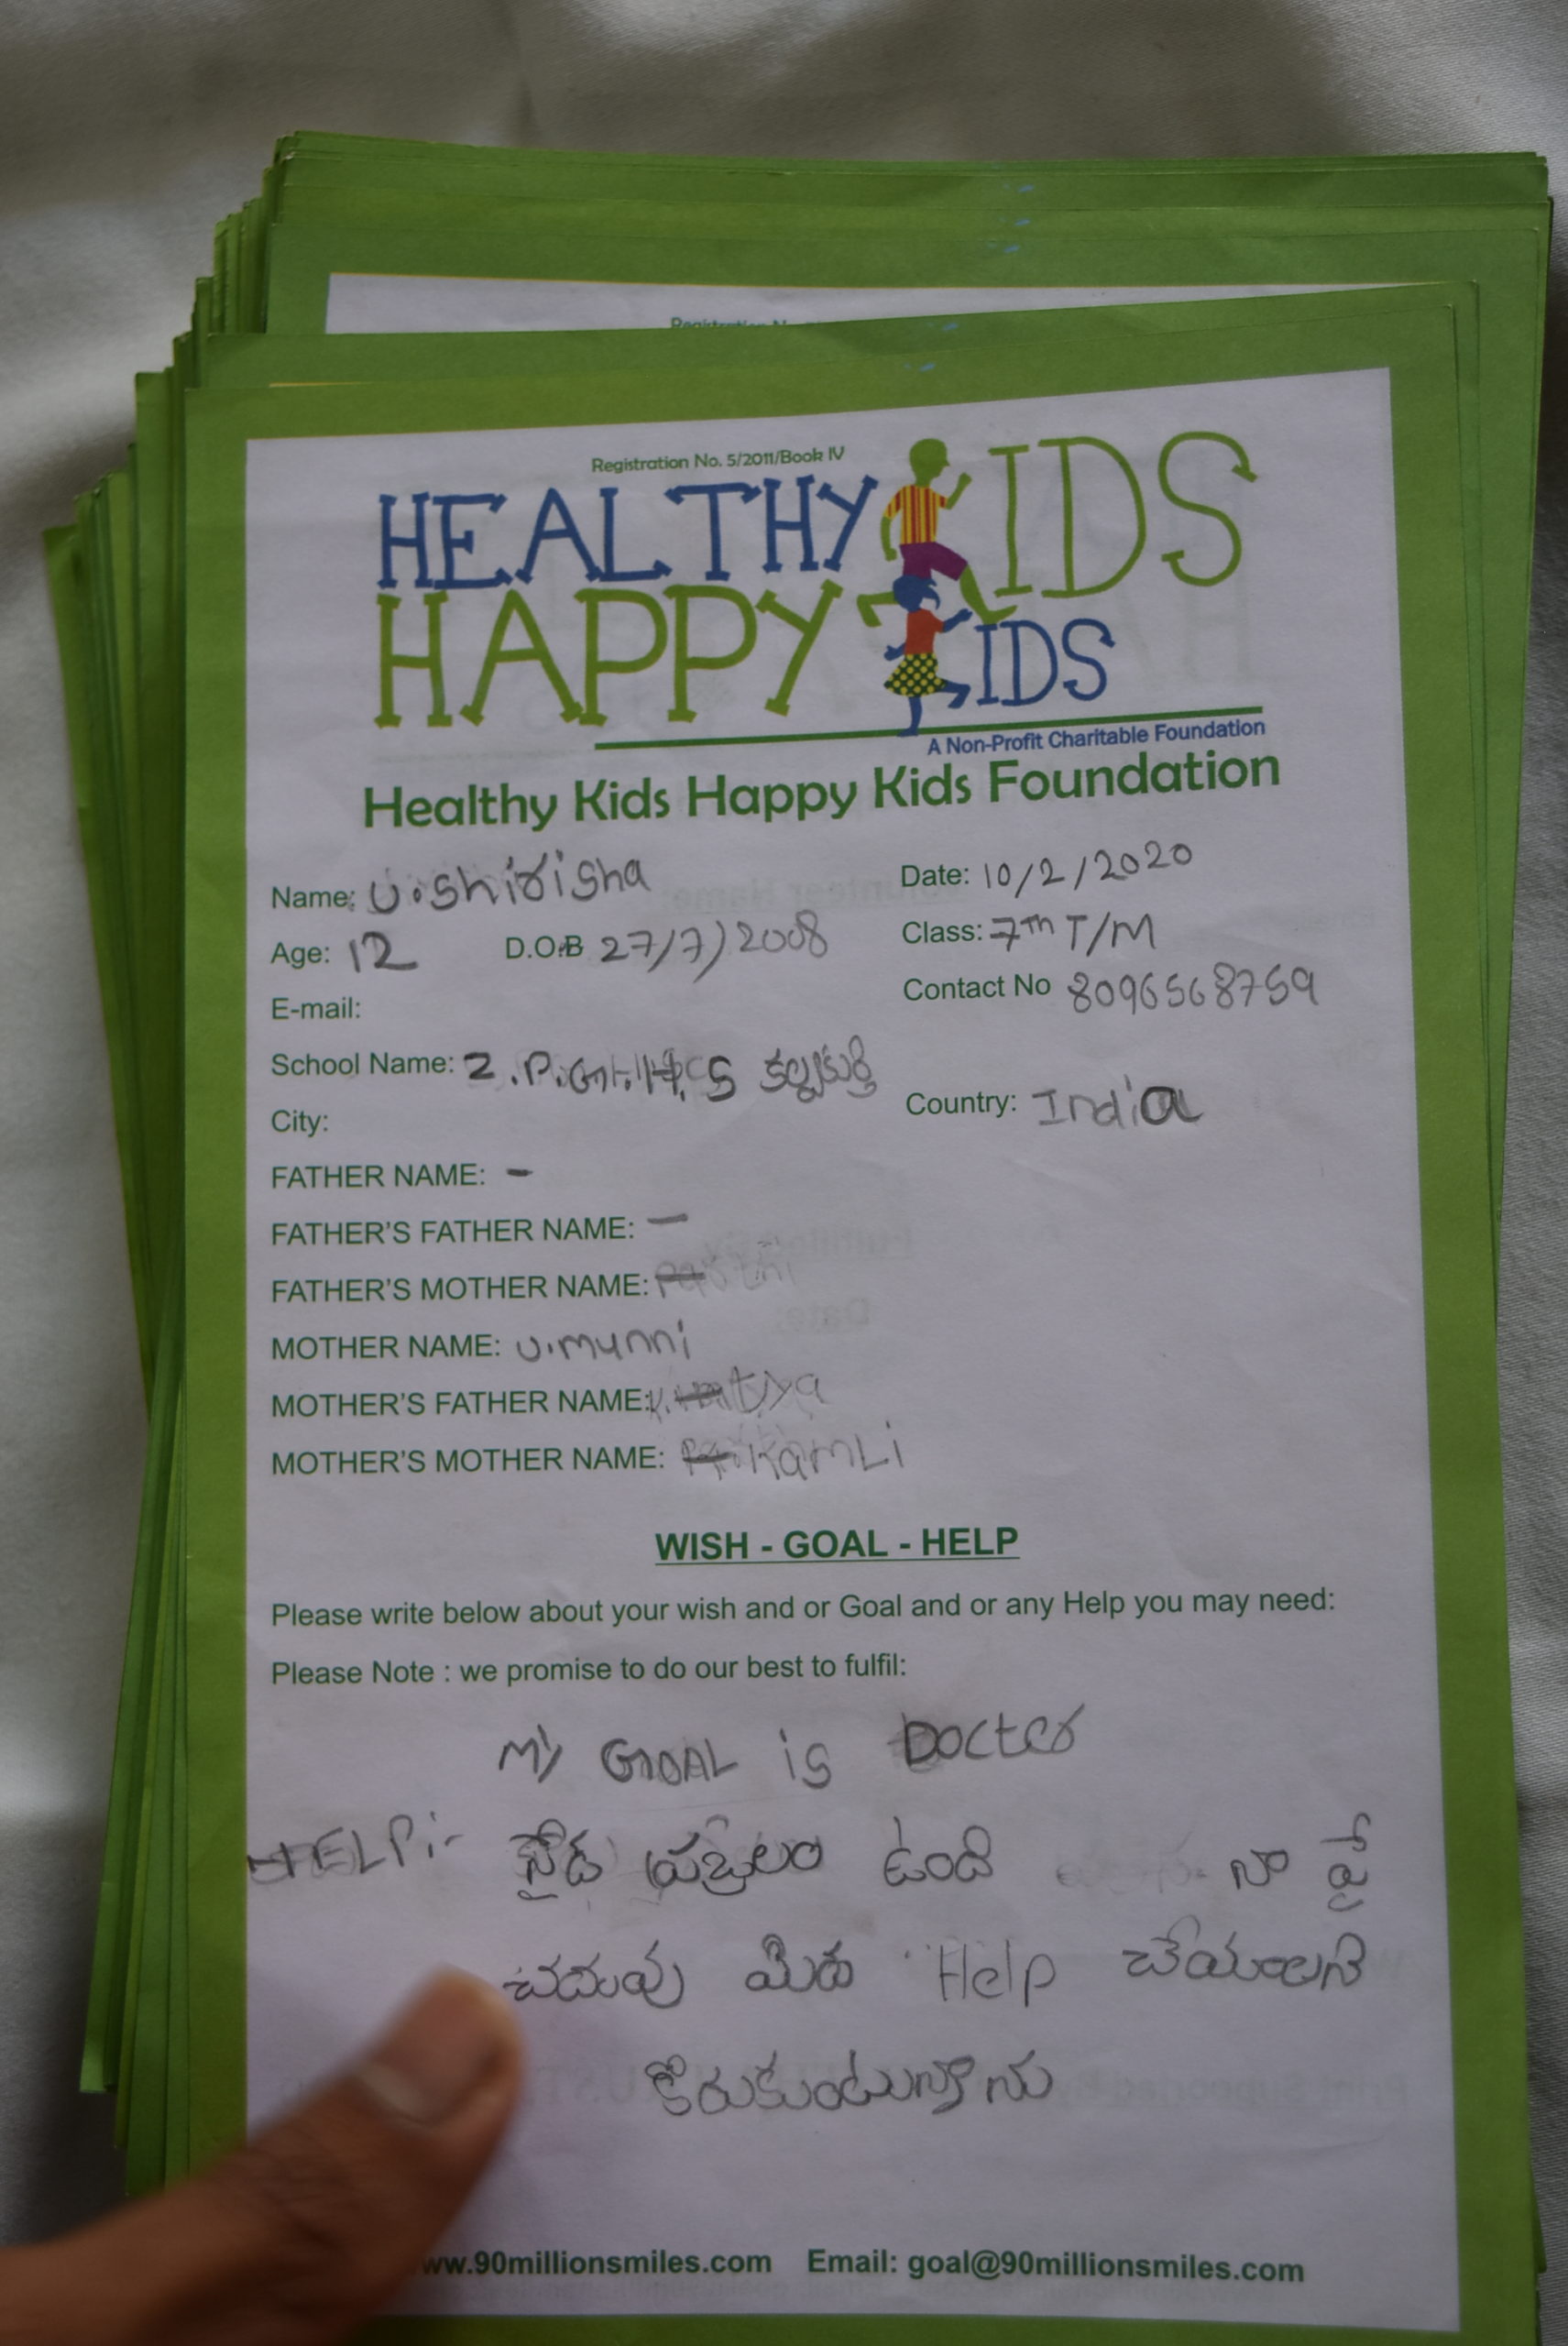 Registration No. 5/2011/Book IV
HEALTHY KIDS
HAPPY KIDS
A Non-Profit Charitable Foundation
Healthy Kids Happy Kids Foundation
Name: U.Shirisha Date: 10/2/2020
Age: 12 D.O.B 27/7/2008 Class: 7th T/M
E-mail: Contact No 8096568759
School Name: Z.P.G.H.S కల్వకుర్తి
City: Country: India
FATHER NAME: -
FATHER'S FATHER NAME: -
FATHER'S MOTHER NAME:
MOTHER NAME: U.munni
MOTHER'S FATHER NAME:
MOTHER'S MOTHER NAME: KamLi
WISH - GOAL - HELP
Please write below about your wish and or Goal and or any Help you may need:
Please Note : we promise to do our best to fulfil:
My GOAL is Docter
HELP:- ఉంది నా పై
చదువు మీద Help చేయాలని
కోరుకుంటున్నాను
www.90millionsmiles.com Email: goal@90millionsmiles.com